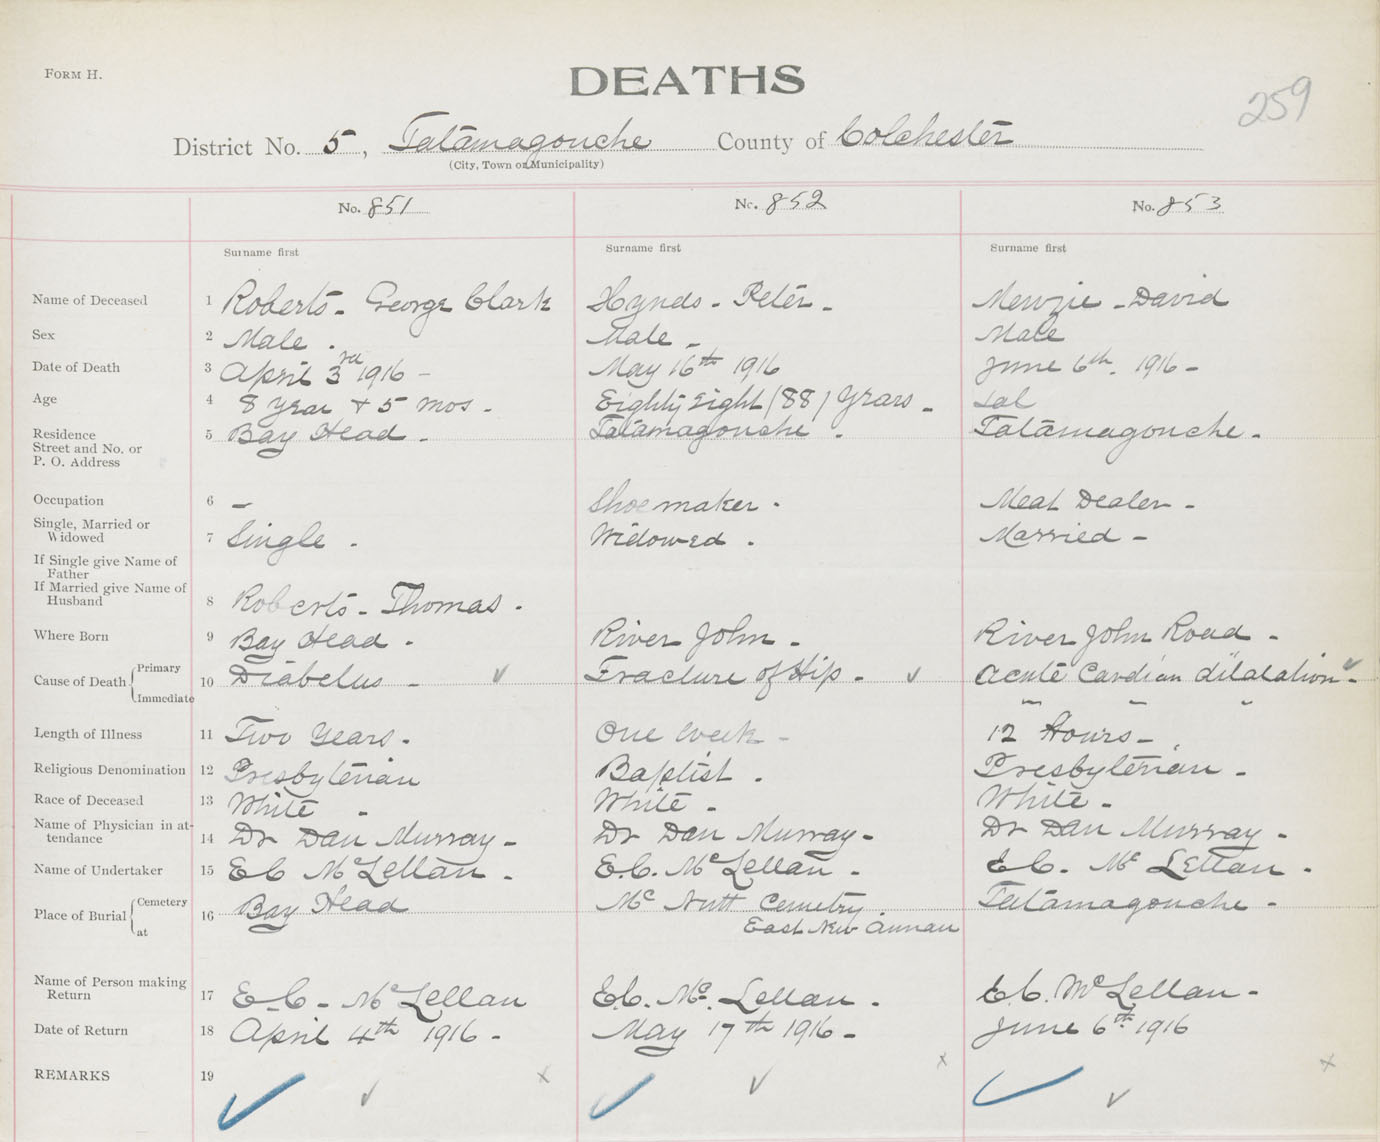 FORM H.
DEATHS
259
District No. 5, Tatamagouche County of Colchester
(City, Town or Municipality)
No. 851 No. 852 No. 853
Surname first Surname first Surname first
Name of Deceased 1 Roberts - George Clark Hynds - Peter - Menzie - David
Sex 2 Male . Male - Male
Date of Death 3 April 3rd 1916 - May 16th 1916 June 6th. 1916 -
Age 4 8 year + 5 mos - Eighty eight (88) years -
Residence
Street and No. or
P. O. Address
5 Bay Head - Tatamagouche . Tatamagouche -
Occupation 6 - Shoemaker . Meat Dealer -
Single, Married or
Widowed 7 Single . Widowed . Married -
If Single give Name of
Father
If Married give Name of
Husband 8 Roberts - Thomas .
Where Born 9 Bay Head . River John - River John Road -
Cause of Death Primary
Immediate
10 Diabetus - Fracture of Hip - Acute Cardiac dilatation -
Length of Illness 11 Two Years . One Week - 12 Hours -
Religious Denomination 12 Presbyterian Baptist . Presbyterian -
Race of Deceased 13 White - White - White -
Name of Physician in at-
tendance 14 Dr Dan Murray - Dr Dan Murray - Dr Dan Murray -
Name of Undertaker 15 E C McLellan - E.C. McLellan - E C. Mc Lellan .
Place of Burial Cemetery
at
16 Bay Head Mc Nutt Cemetry . Tatamagouche -
East New Annan
Name of Person making
Return 17 E. C - McLellan E.C. Mc. Lellan - E.C. McLellan -
Date of Return 18 April 4th 1916 - May 17th 1916 - June 6th 1916
REMARKS 19